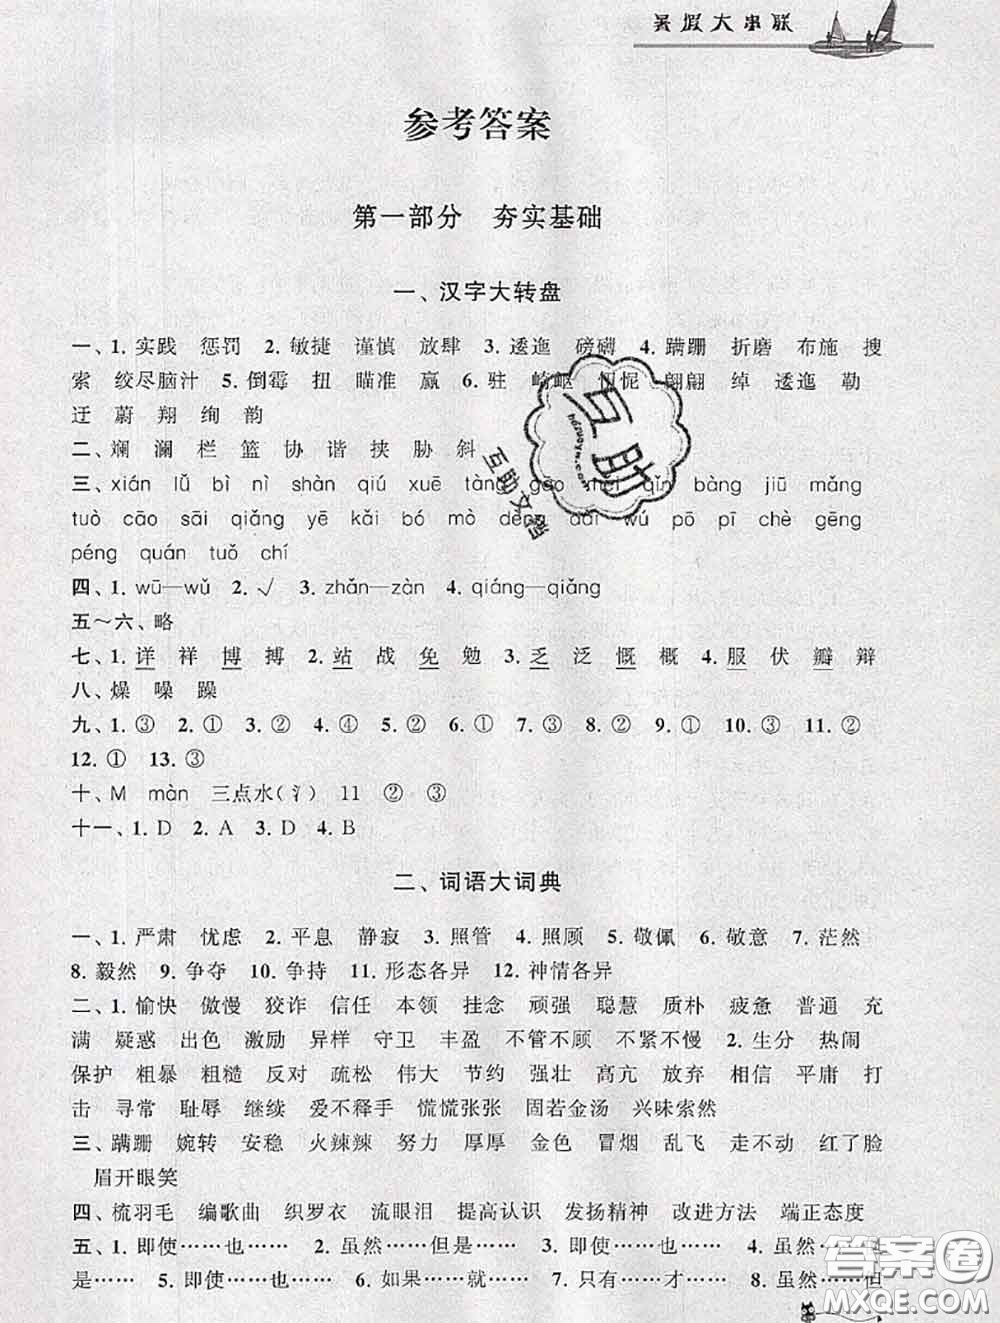 暑假大串联
参考答案
第一部分 夯实基础
一、汉字大转盘
一、1. 实践 惩罚 2. 敏捷 谨慎 放肆 3. 逶迤 磅礴 4. 蹒跚 折磨 布施 搜
索 绞尽脑汁 5. 倒霉 扭 瞄准 赢 6. 驻 崎岖 忸怩 翩翩 绰 逶迤 勒
迂 蔚 翔 绚 韵
二、斓 澜 栏 篮 协 谐 挟 胁 斜
三、xián lǔ bì nì shàn qiú xuē tàng gēng gāo qǐn bàng jiū māng
tuò cāo sāi qiǎng yē kǎi bó mò dèng dāi wú pō pī chè gēng
péng quán tuǒ chí
四、1. wū—wǔ 2. √ 3. zhǎn—zàn 4. qiáng—qiǎng
五～六、略
七、1. 详 祥 博 搏 2. 站 战 免 勉 3. 乏 泛 慨 概 4. 服 伏 瓣 辩
八、燥 噪 躁
九、1. ③ 2. ① 3. ② 4. ④ 5. ② 6. ① 7. ③ 8. ② 9. ① 10. ③ 11. ②
12. ① 13. ③
十、M màn 三点水(氵) 11 ② ③
十一、1. D 2. A 3. D 4. B
二、词语大词典
一、1. 严肃 忧虑 2. 平息 静寂 3. 照管 4. 照顾 5. 敬佩 6. 敬意 7. 茫然
8. 毅然 9. 争夺 10. 争持 11. 形态各异 12. 神情各异
二、1. 愉快 傲慢 狡诈 信任 本领 挂念 顽强 聪慧 质朴 疲惫 普通 充
满 疑惑 出色 激励 异样 守卫 丰盈 不管不顾 不紧不慢 2. 生分 热闹
保护 粗暴 粗糙 反对 疏松 伟大 节约 强壮 高亢 放弃 相信 平庸 打
击 寻常 耻辱 继续 爱不释手 慌慌张张 固若金汤 兴味索然
三、蹒跚 婉转 安稳 火辣辣 努力 厚厚 金色 冒烟 乱飞 走不动 红了脸
眉开眼笑
四、梳羽毛 编歌曲 织罗衣 流眼泪 提高认识 发扬精神 改进方法 端正态度
五、1. 即使……也…… 2. 虽然……但是…… 3. 即使……也…… 4. 虽然……
是…… 5. 即使……也…… 6. 如果……就…… 7. 只有……才…… 8. 虽然……但
互助
互助文
答案圈
MXQE.COM